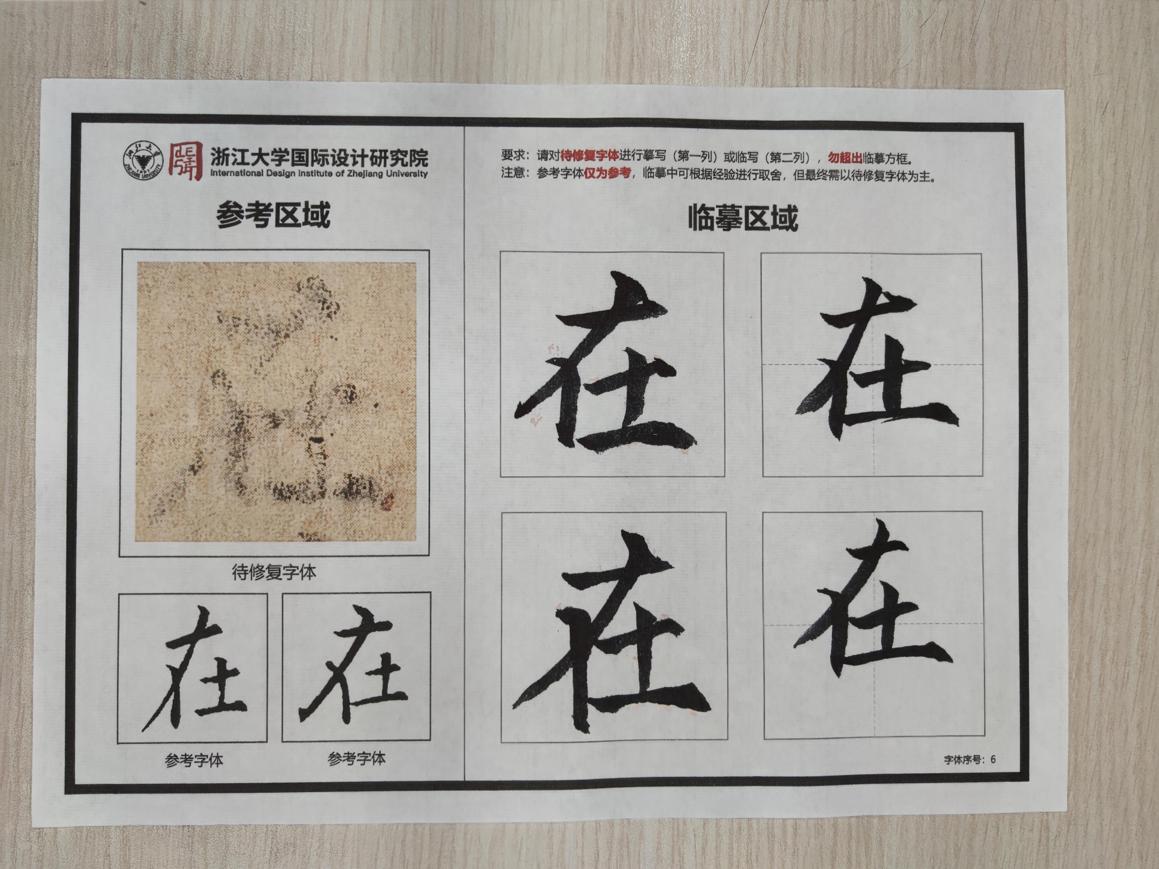 浙江大学国际设计研究院
International Design Institute of Zhejiang University
参考区域
在
待修复字体
在
在
参考字体
参考字体
要求：请对待修复字体进行摹写（第一列）或临写（第二列），勿超出临摹方框。
注意：参考字体仅为参考，临摹中可根据经验进行取舍，但最终需以待修复字体为主。
临摹区域
在
在
在
在
字体序号：6